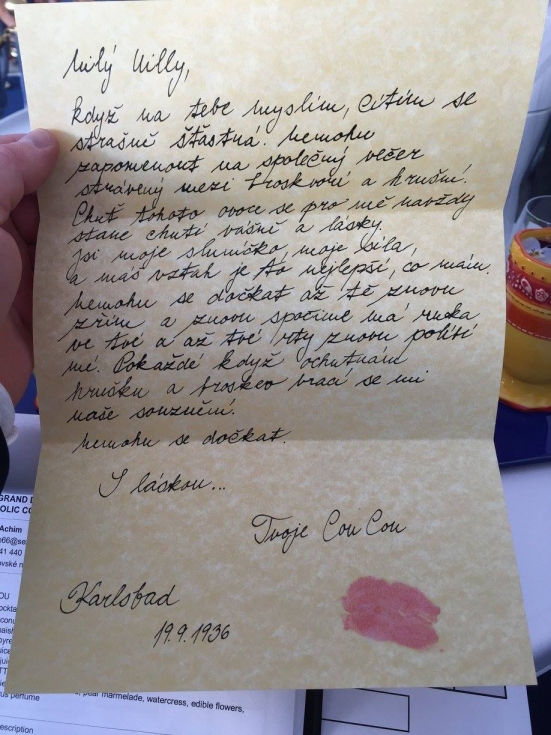 Milý Willy,
když na tebe myslím, cítím se
strašně šťastná. Nemohu
zapomenout na společný večer
strávený mezi broskvoní a hrušní.
Chuť tohoto ovoce se pro mě navždy
stane chutí vášně a lásky.
Jsi moje sluníčko, moje síla,
a náš vztah je to nejlepší, co mám.
Nemohu se dočkat až tě znovu
zřím a znovu spočine má ruka
ve tvé a až tvé rty znovu políbí
mé. Pokaždé když ochutnám
hrušku a broskev vrací se mi
naše souznění.
Nemohu se dočkat.
S láskou...
Tvoje Cou Cou
Karlsbad
19.9.1936
GRAND
Achim
41 440
pear marmelade, watercress, edible flowers,
perfume